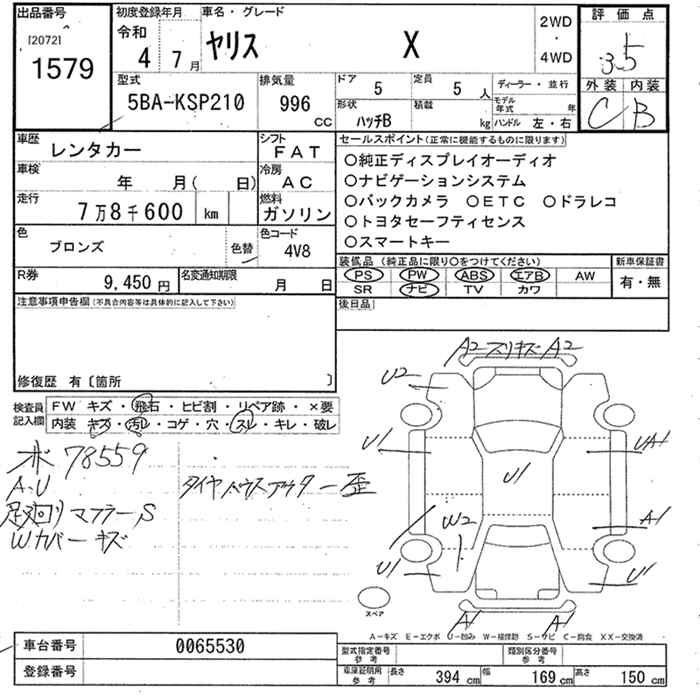 出品番号
[2072]
1579
初度登録年月
令和
4 7月
車名・グレード
ヤリス X
2WD
・
4WD
評価点
3.5
外装 内装
C B
型式
5BA-KSP210
排気量
996 CC
ドア
5
定員
5 人
形状
ハッチB
積載
kg
ディーラー・並行
モデル年式 年
ハンドル 左・右
車歴
レンタカー
シフト
FAT
車検
年 月( 日)
冷房
AC
走行
7万8千600 km
燃料
ガソリン
色
ブロンズ
色替
色コード
4V8
R券
9,450円
名変通知期限
月 日
セールスポイント(正常に機能するものに限ります)
○純正ディスプレイオーディオ
○ナビゲーションシステム
○バックカメラ ○ETC ○ドラレコ
○トヨタセーフティセンス
○スマートキー
装備品(純正品に限り○をつけてください)
PS PW ABS エアB AW
SR ナビ TV カワ
新車保証書
有・無
後日品
注意事項申告欄(不具合内容等は具体的に記入して下さい)
修復歴 有〔箇所 〕
検査員記入欄
FW キズ・飛石・ヒビ割・リペア跡・×要
内装 キズ・汚レ・コゲ・穴・スレ・キレ・破レ
ボ 78559
A.U
足廻り マフラーS
Wカバーキズ
タイヤハウスアウター歪
A2 スリキズ A2
U2
U1
UA1
U1
W2
A1
U1
U1
A1
A1
スペア
A-キズ E-エクボ U-凹み W-補修跡 S-サビ C-腐食 XX-交換済
車台番号
0065530
登録番号
型式指定番号
参考
類別区分番号
参考
車庫証明用
参考
長さ 394 cm 幅 169 cm 高さ 150 cm